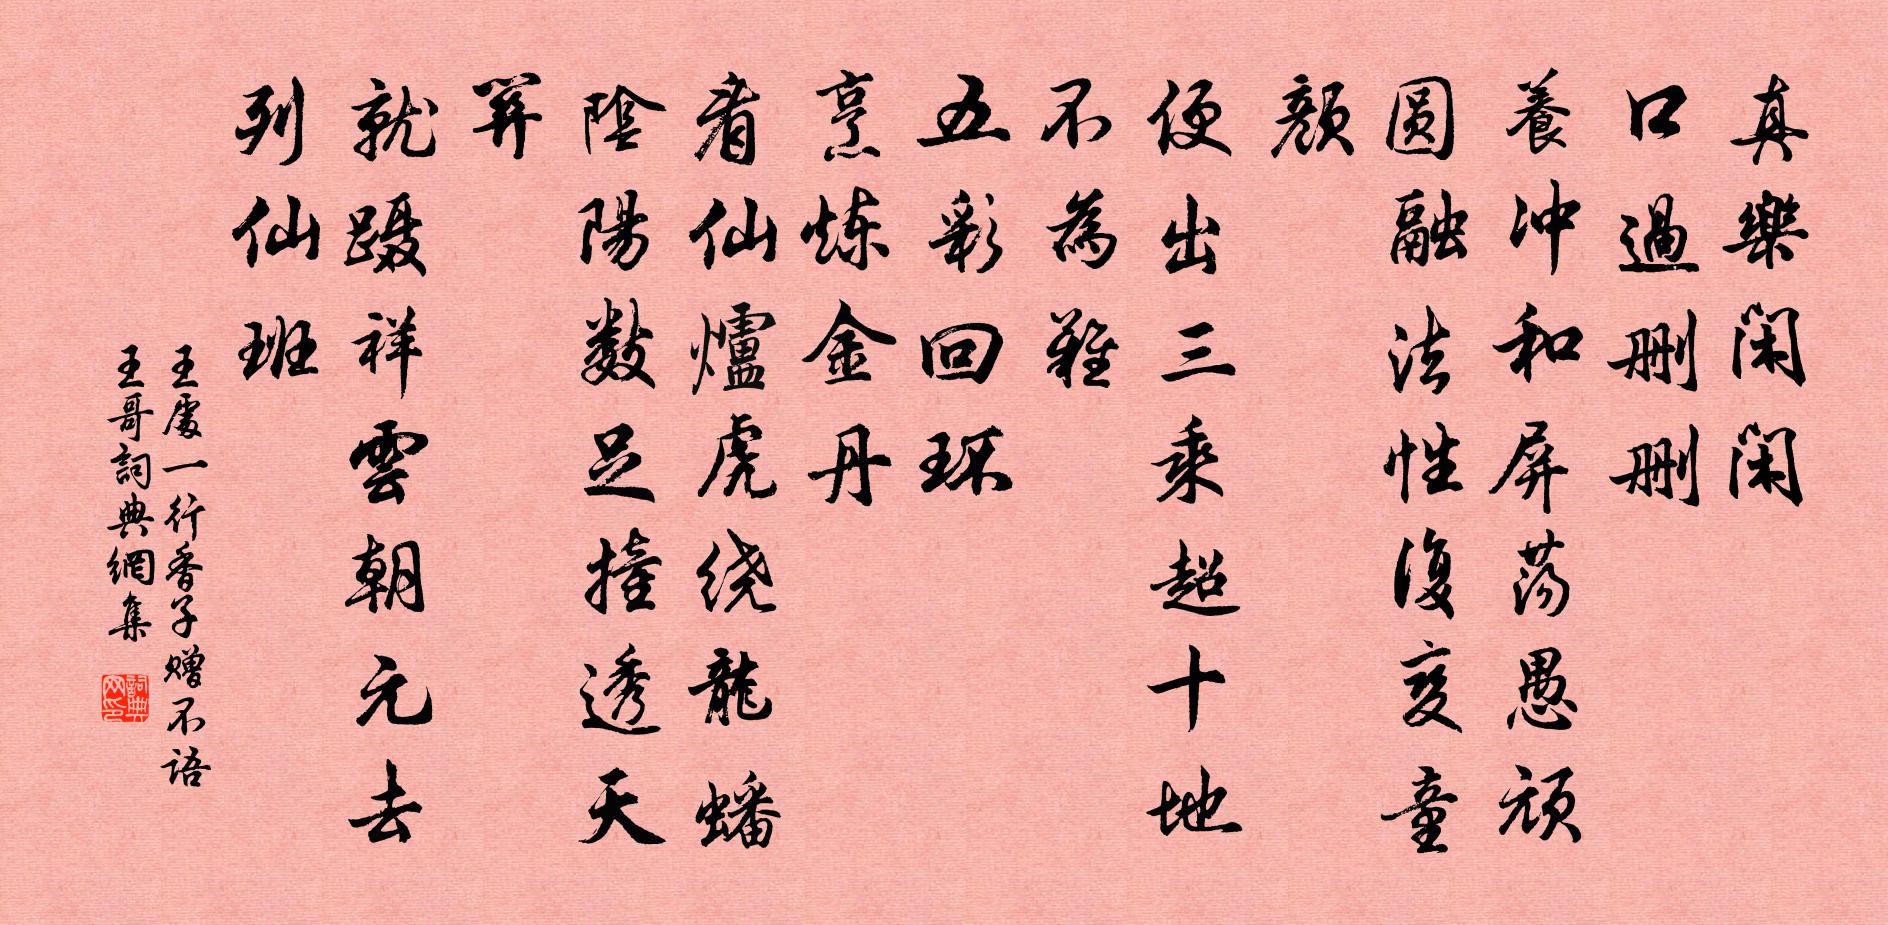 真樂閑閑
口過删删
養冲和屏蕩愚頑
圆融法性復变童
颜
便出三乘超十地
不為難
五彩回环
烹炼金丹
看仙爐虎绕龍蟠
陰陽数足撞透天
関
就蹑祥雲朝元去
列仙班
王處一行香子赠不語
王哥詞典網集
詞典网印